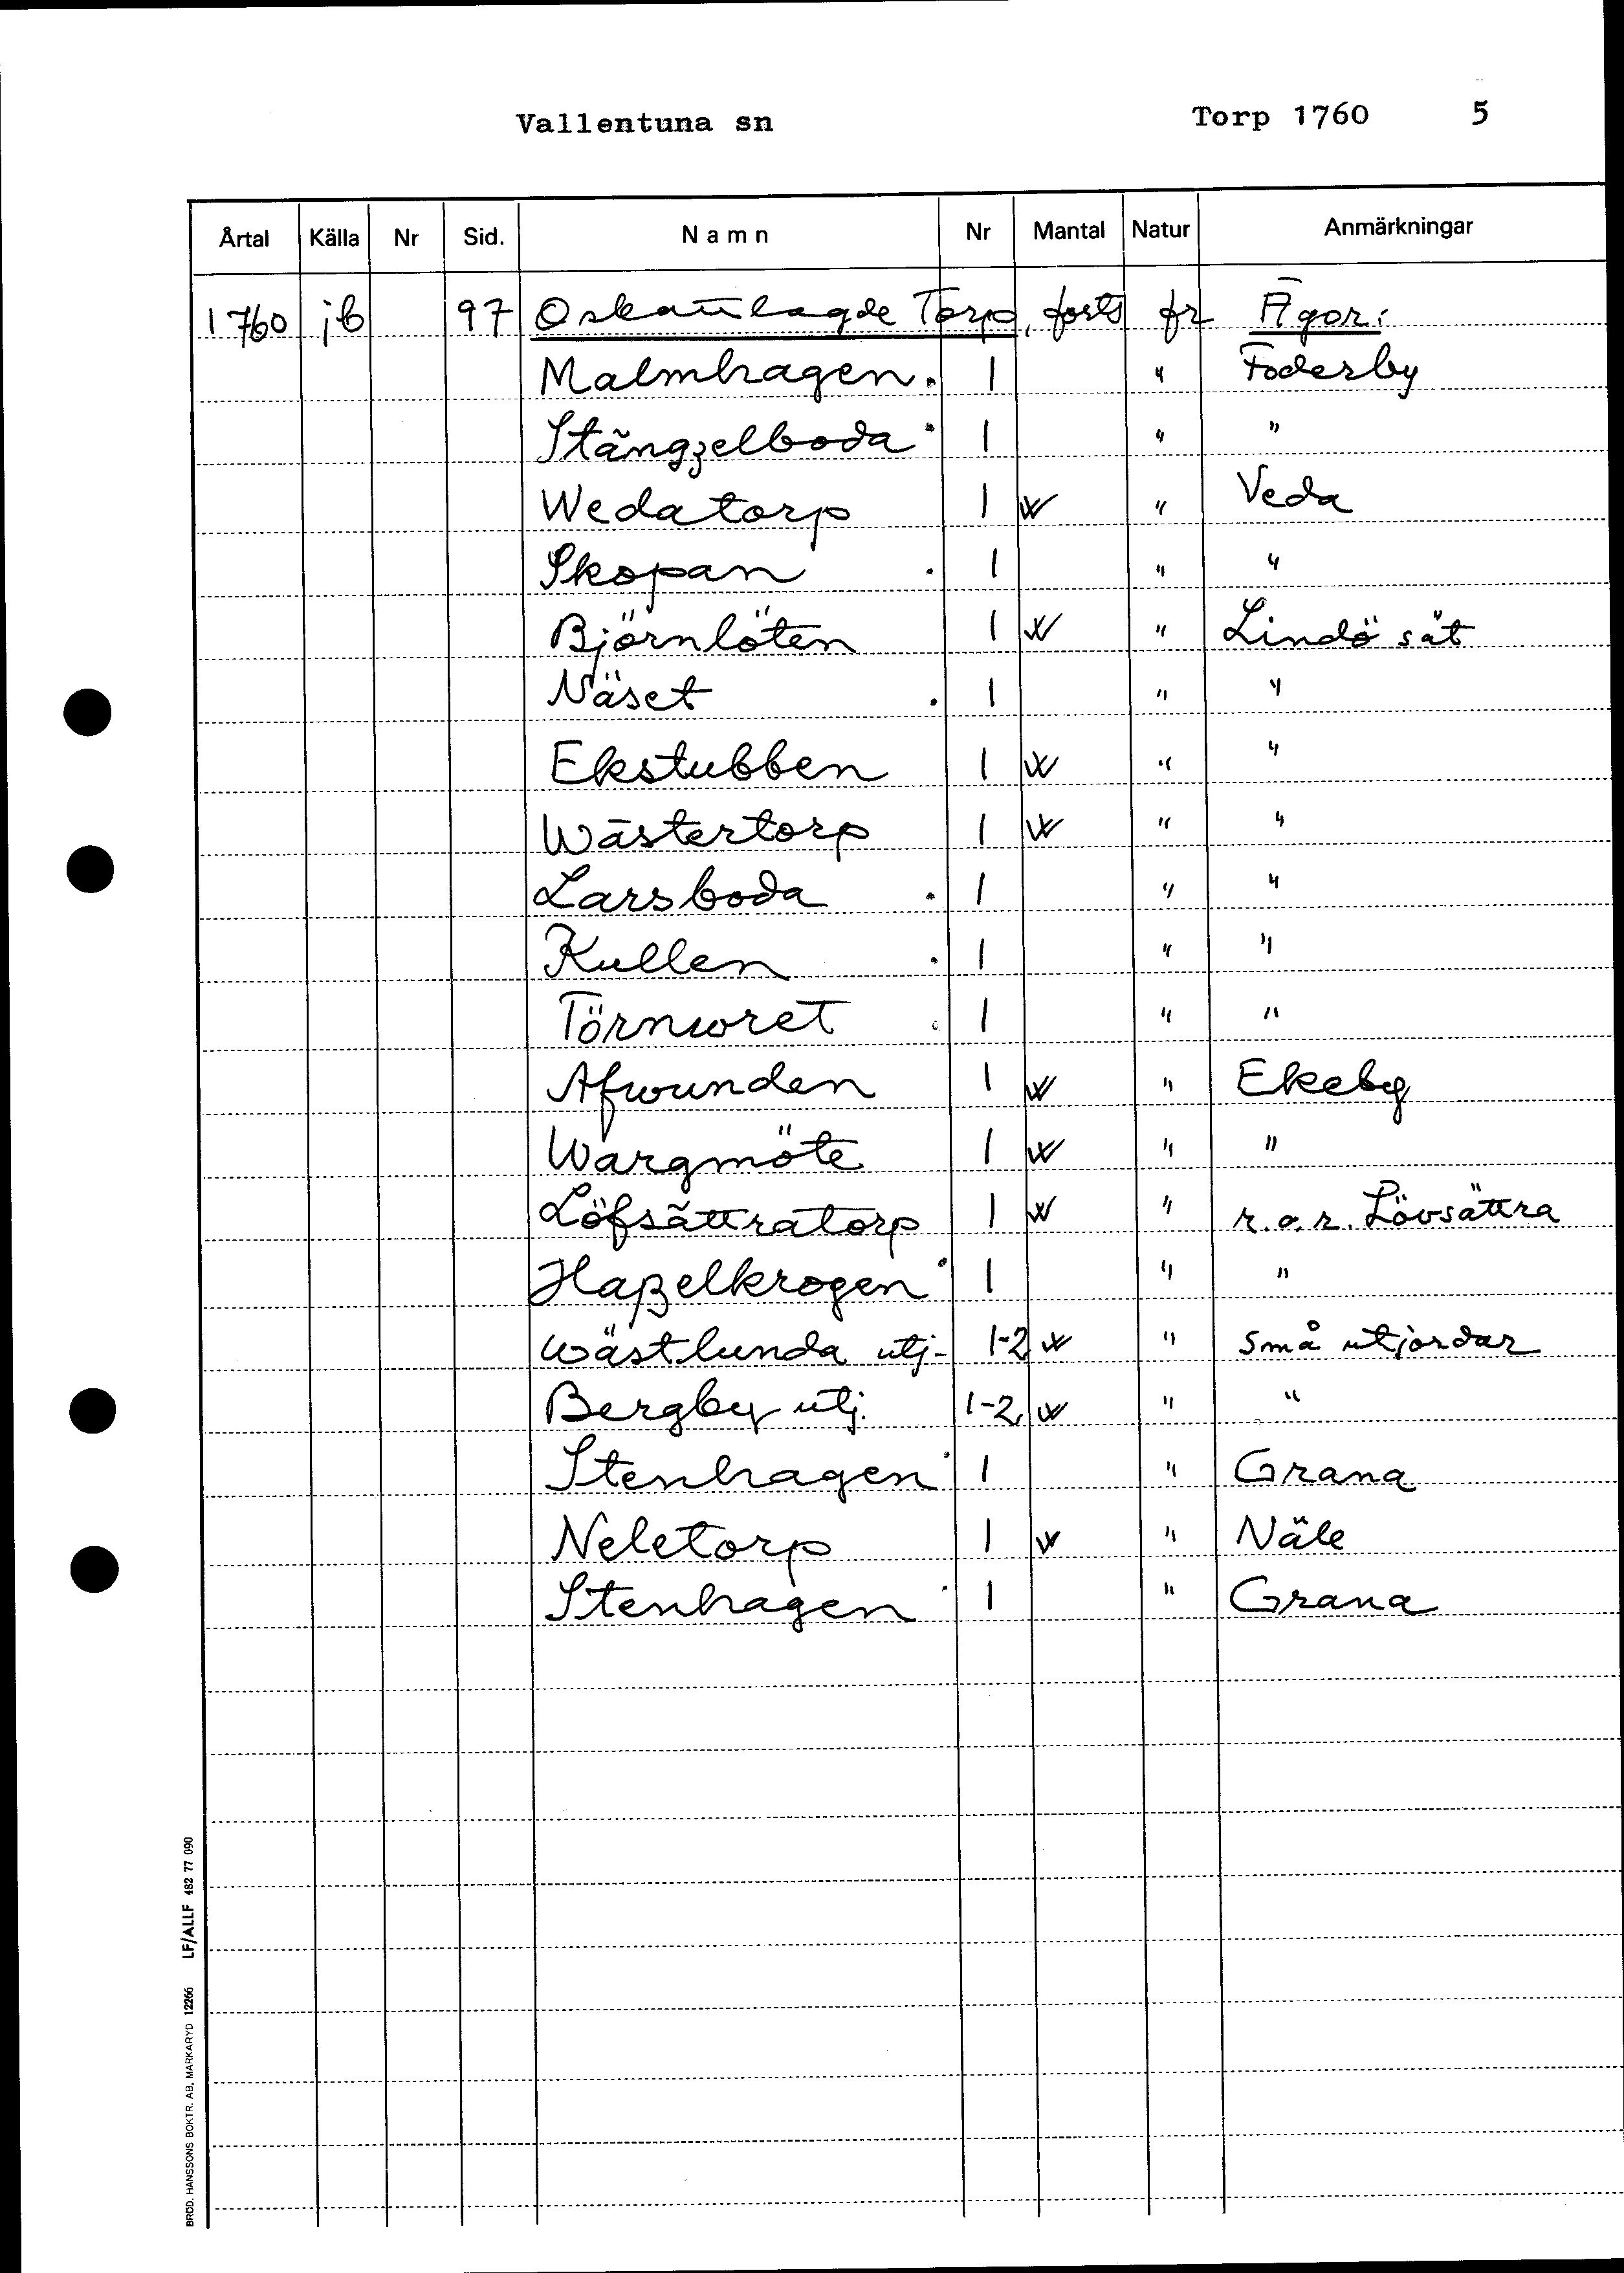 Vallentuna sn Torp 1760 5
Årtal Källa Nr Sid. Namn Nr Mantal Natur Anmärkningar
1760 jb 97 Oskattlagde Torp, forts fr Ägor:
Malmhagen. 1 " Foderby
Stängzelboda 1 " "
Wedatorp 1 W " Veda
Skopan . 1 " "
Björnlöten 1 W " Lindö sät
Näset . 1 " "
Ekstubben 1 W " "
Wästertorp 1 W " "
Larsboda . 1 " "
Kullen . 1 " "
Törnworet . 1 " "
Afwunden 1 W " Ekeby
Wargmöte 1 W " "
Löfsättratorp 1 W " r.o.r. Lövsättra
Haßelkrogen . 1 " "
Wästlunda utj- 1-2 W " små utjordar
Bergby utj. 1-2 W " "
Stenhagen . 1 " Grana
Neletorp 1 W " Näle
Stenhagen . 1 " Grana
BRÖD. HANSSONS BOKTR. AB, MARKARYD 12266 LF/ALLF 482 77 090